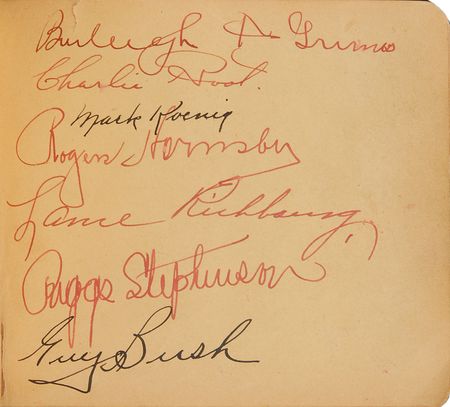 Burleigh A Grimes
Charlie Root.
Mark Koenig
Rogers Hornsby
Lance Richbourg
Riggs Stephenson
Guy Bush